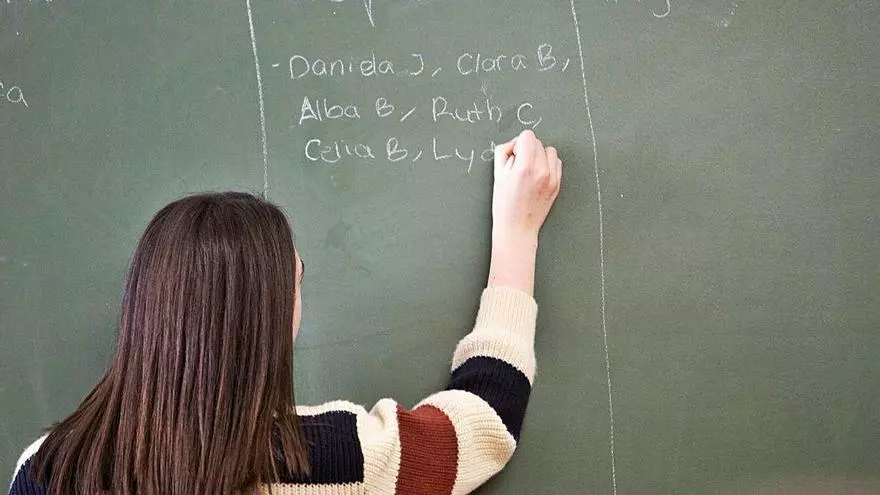 - Daniela J, Clara B,
Alba B, Ruth C,
Celia B,